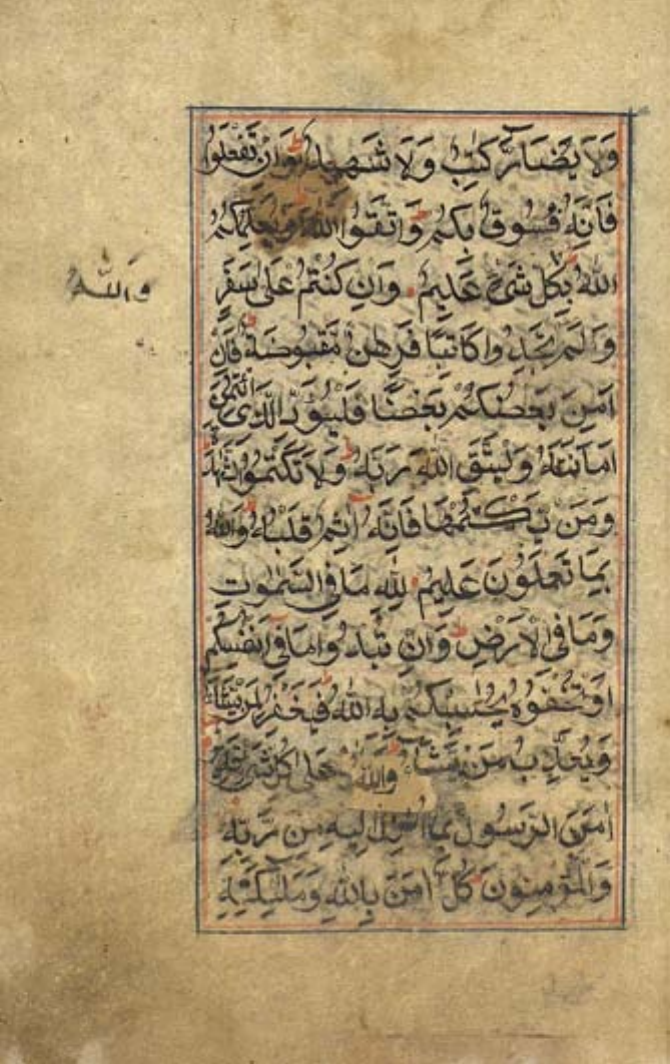 وَلَا يُضَارَّ كَاتِبٌ وَلَا شَهِيدٌ وَاِنْ تَفْعَلُوا
فَاِنَّهُ فُسُوقٌ بِكُمْ وَاتَّقُوا اللّٰهَ وَيُعَلِّمُكُمُ
اللّٰهُ بِكُلِّ شَیْءٍ عَلِيمٌ وَاِنْ كُنْتُمْ عَلٰى سَفَرٍ
وَاللّٰه
وَلَمْ تَجِدُوا كَاتِبًا فَرِهٰنٌ مَقْبُوضَةٌ فَاِنْ
اَمِنَ بَعْضُكُمْ بَعْضًا فَلْيُؤَدِّ الَّذِى اؤْتُمِنَ
اَمَانَتَهُ وَلْيَتَّقِ اللّٰهَ رَبَّهُ وَلَا تَكْتُمُوا الشَّهَادَةَ
وَمَنْ يَكْتُمْهَا فَاِنَّهُ اٰثِمٌ قَلْبُهُ وَاللّٰهُ
بِمَا تَعْمَلُونَ عَلِيمٌ لِلّٰهِ مَا فِى السَّمٰوٰتِ
وَمَا فِى الْاَرْضِ وَاِنْ تُبْدُوا مَا فِى اَنْفُسِكُمْ
اَوْ تُخْفُوهُ يُحَاسِبْكُمْ بِهِ اللّٰهُ فَيَغْفِرُ لِمَنْ يَشَاءُ
وَيُعَذِّبُ مَنْ يَشَاءُ وَاللّٰهُ عَلٰى كُلِّ شَیْءٍ قَدِيرٌ
اٰمَنَ الرَّسُولُ بِمَا اُنْزِلَ اِلَيْهِ مِنْ رَبِّهِ
وَالْمُؤْمِنُونَ كُلٌّ اٰمَنَ بِاللّٰهِ وَمَلٰئِكَتِهِ